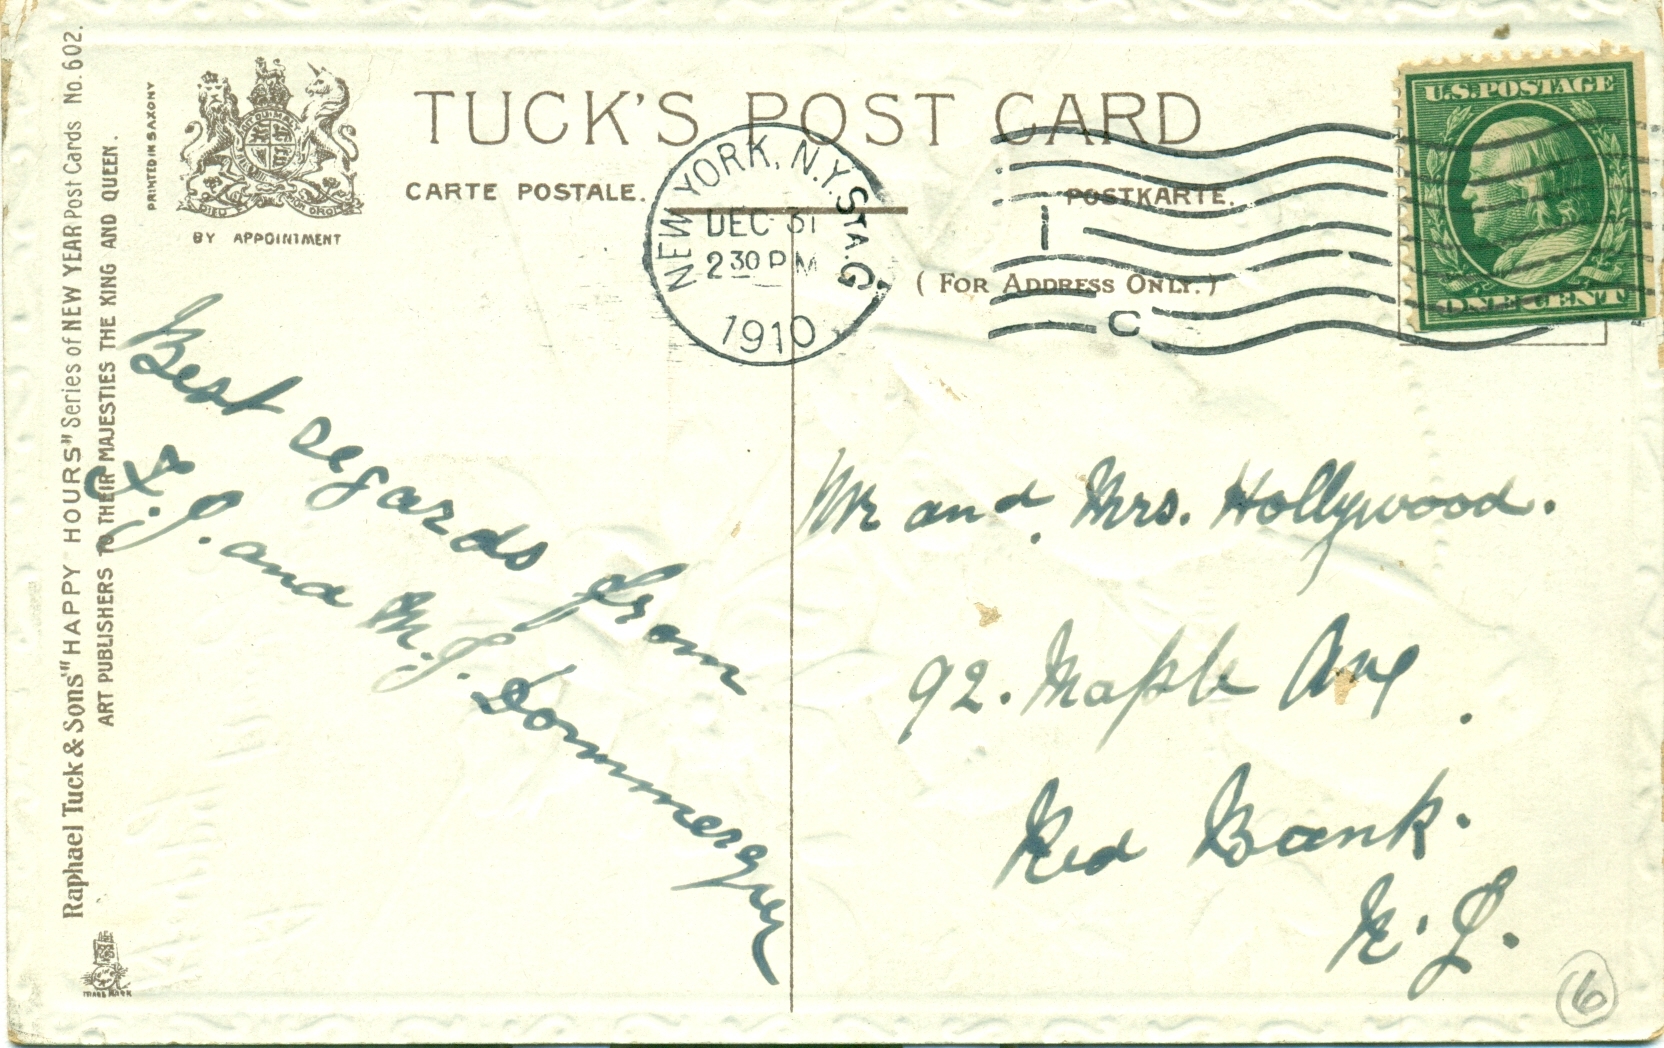 Raphael Tuck & Sons' "HAPPY HOURS" Series of NEW YEAR Post Cards No. 602.
ART PUBLISHERS TO THEIR MAJESTIES THE KING AND QUEEN.
PRINTED IN SAXONY
BY APPOINTMENT
TUCK'S POST CARD
CARTE POSTALE.
POSTKARTE.
(FOR ADDRESS ONLY.)
NEW YORK, N.Y. STA. G
DEC 31
2 30 PM
1910
1
C
U.S. POSTAGE
ONE CENT
Best regards from
F. J. and M. J. Dommerque
Mr and Mrs. Hollywood.
92. Maple Ave.
Red Bank.
N. J.
TRADE MARK
6